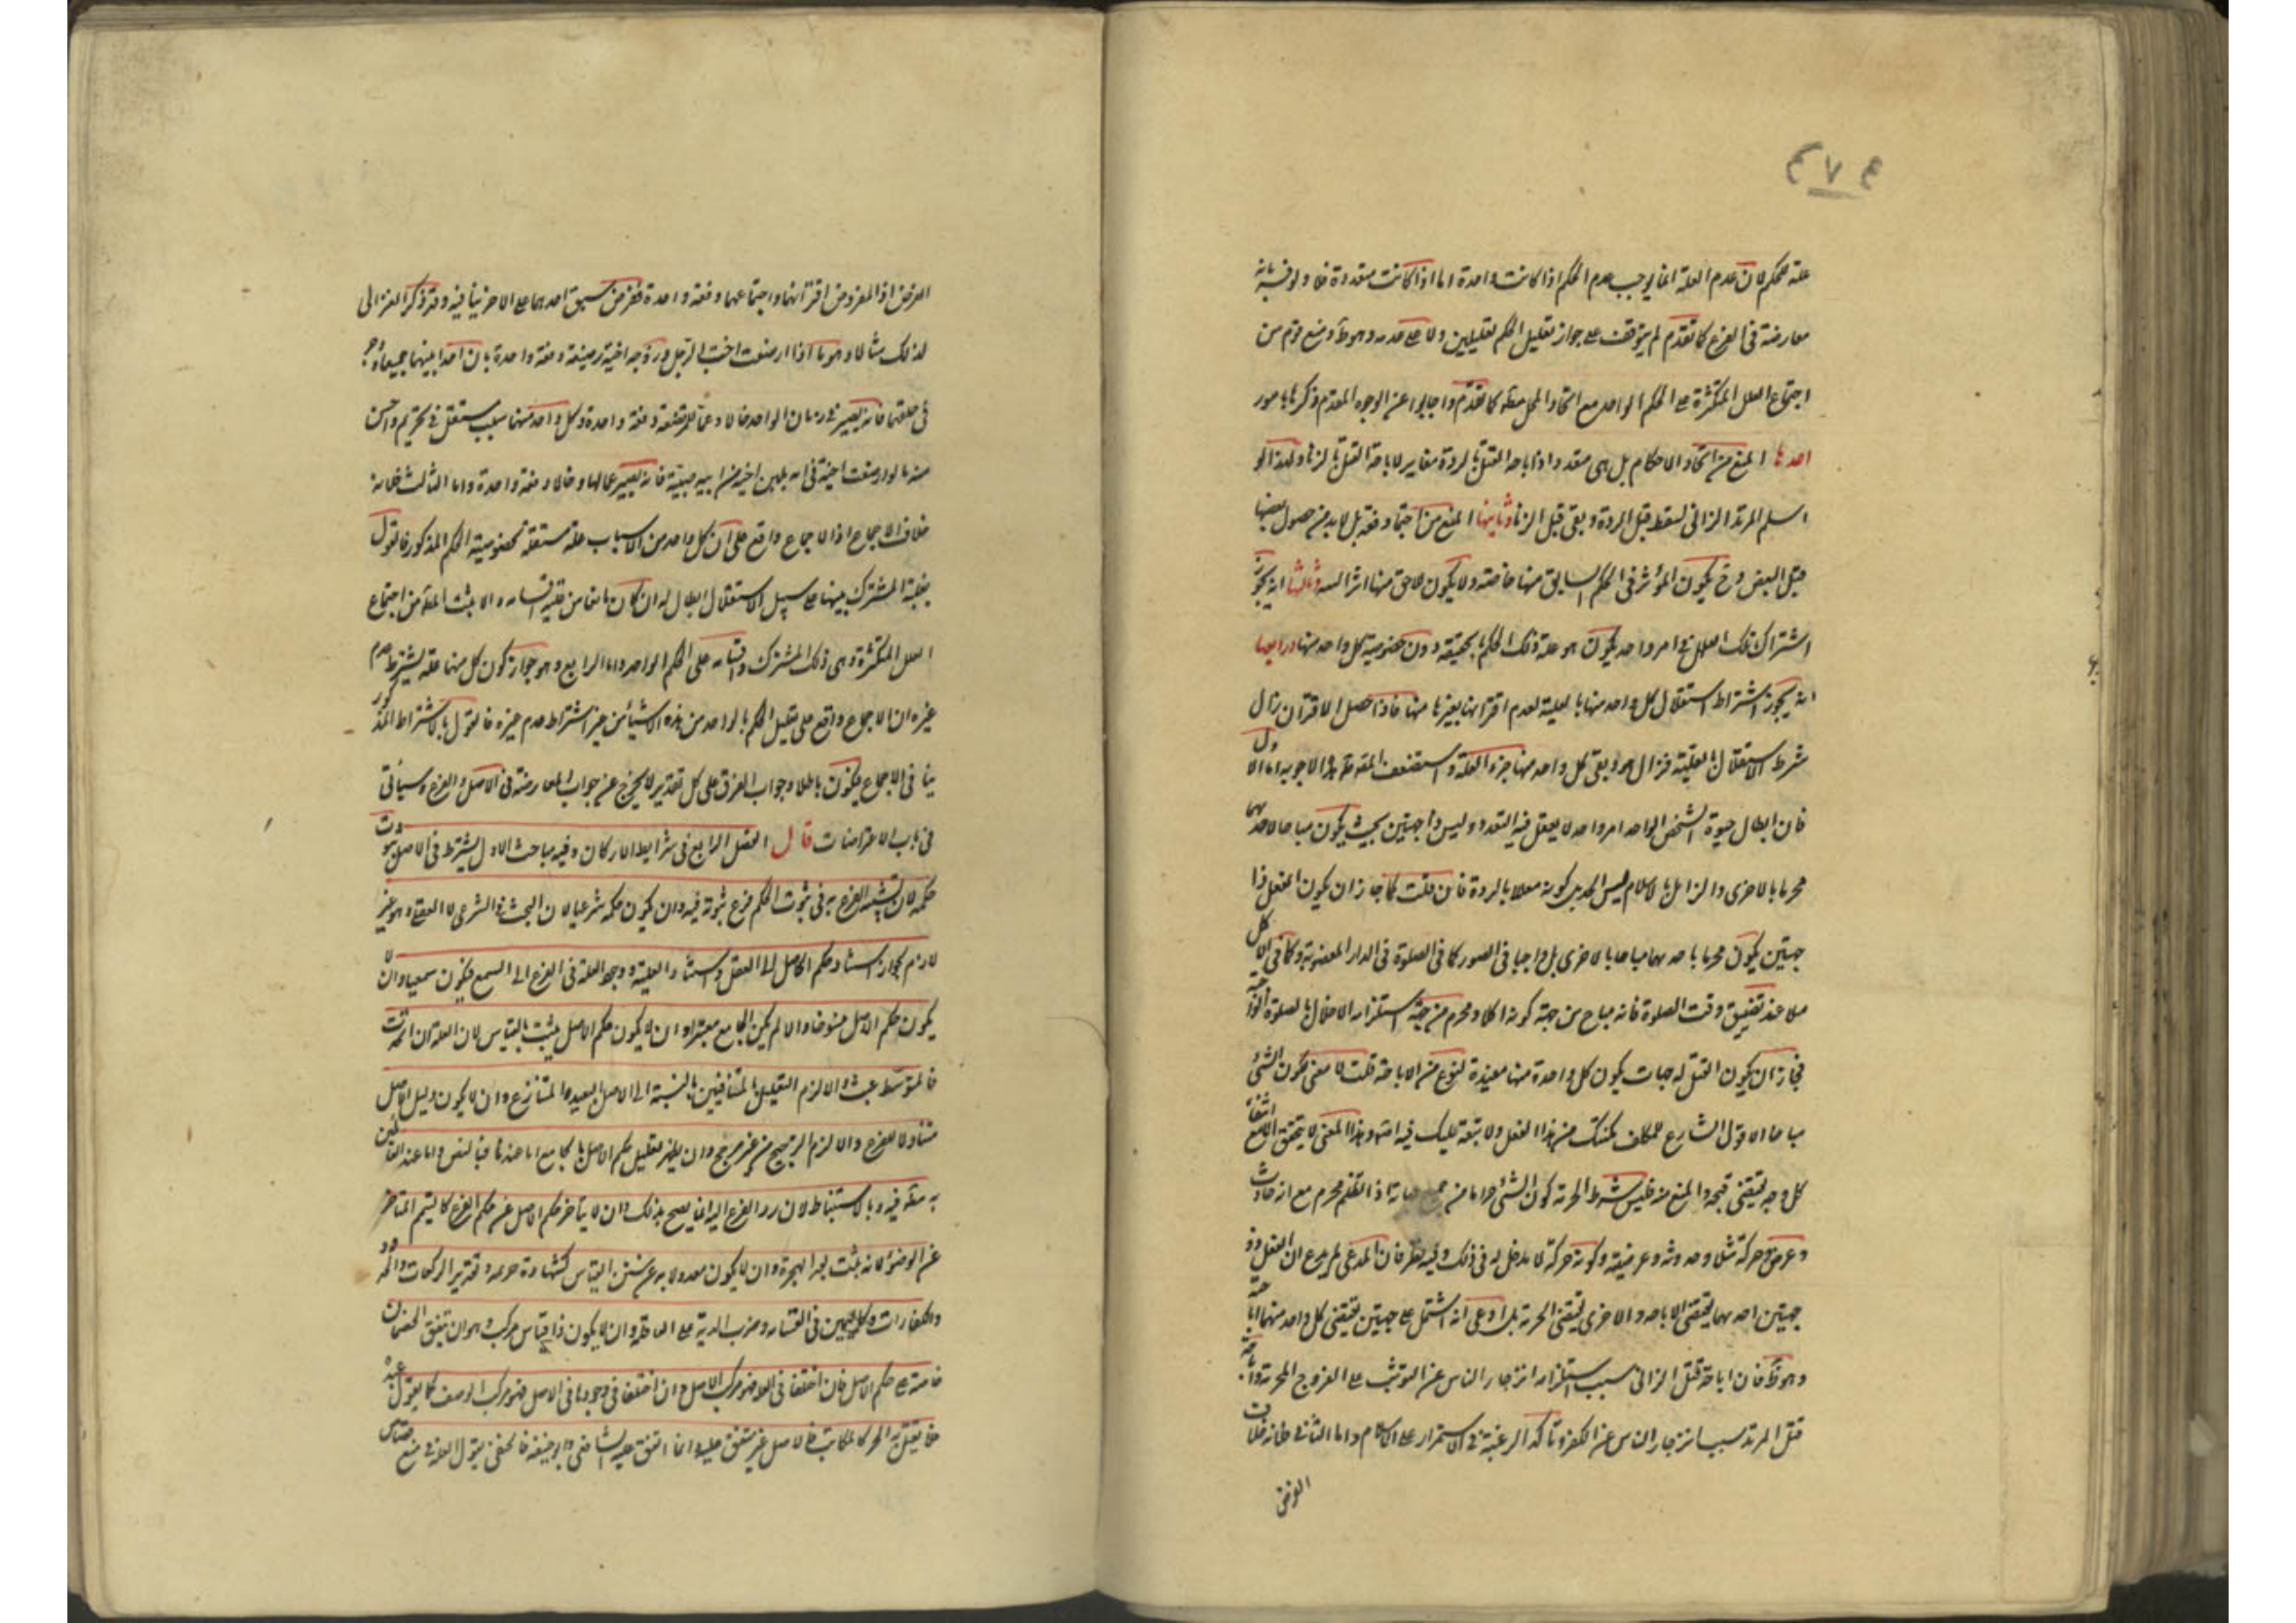 ٤٧٤
علة للحكم لان عدم العلة انما يوجب عدم الحكم اذا كانت واحدة اما اذا كانت متعددة فلا ولو فسر بانه
معارضة فى الفرع كما تقدم لم يتوقف على جواز تعليل الحكم بعلتين ولا على عدمه وهو ظ ومنع قوم من
اجتماع العلل المتكثرة على الحكم الواحد مع اتحاد المحل معه كما تقدم واجابوا عن الوجه المقدم ذكرها بامور
احدها المنع من اتحاد الاحكام بل هى متعددة اذ اباحة القتل بالردة مغاير لاباحة القتل بالزنا ولهذا لو
اسلم المرتد الزانى لسقط قتل الردة وبقى قتل الزنا وثانيها المنع من اجتماعها دفعة بل لا بد من حصول بعضها
قبل البعض وح يكون المؤثر فى الحكم السابق منها خاصة ولا يكون للاحق منها اثر البتة وثالثها انه يجوز
اشتراك تلك العلل فى امر واحد يكون هو علة ذلك الحكم بالحقيقة دون خصوصية كل واحد منها ورابعها
انه يجوز اشتراط استقلال كل واحد منها بالعلية لعدم اقترانها بغيرها منها فاذا حصل الاقتران يزال
شرط الاستقلال بالعلية فزال هو وبقى كل واحد منها جزء العلة واستضعف المصنف هذه الاجوبة اما الاول
فان ابطال حيوة الشخص الواحد امر واحد لا يعقل فيه التعدد وليس ذا جهتين بحيث يكون مباحا لاحدهما
محرما بالاخرى والزايل بالاسلام ليس الا كونه معللا بالردة فان قلت كما جاز ان يكون الفعل ذا
جهتين يكون محرما باحديهما مباحا بالاخرى بل واجبا فى الصور كما فى الصلوة فى الدار المغصوبة وكما فى الاكل
ملا عند تضيق وقت الصلوة فانه مباح من جهة كونه اكلا ومحرم من جهة استلزامه الاخلال بالصلوة الواجبة
فجاز ان يكون القتل له جهات يكون كل واحدة منها مفيدة لنوع من الاباحة قلت لا معنى لكون الشئ
مباحا الا قول الشارع للمكلف مكنتك من هذا الفعل ولا تبعة عليك فيه اصلا وهذا المعنى لا يتحقق الا مع انتفاء
كل وجه يقتضى قبحه والمنع منه فليس شرط الحرمة كون الشئ حراما من جميع جهاته اذ الظلم محرم مع ان حادث
وعرض وحركة مثلا وحدوثه وعرضيته وكونه حركة لا مدخل له فى ذلك وفيه نظر فان المدعى لم يدع ان الفعل ذو
جهتين احديهما تقتضى الاباحة والاخرى تقتضى الحرمة بل ادعى انه اشتمل على جهتين تقتضى كل واحد منهما اباحة
وهو ظ فان اباحة قتل الزانى بسبب استلزامه انزجار الناس عن التوثب على الفروج المحرمة واباحة
قتل المرتد بسبب انزجار الناس عن الكفر وتاكد الرغبة فى الاستمرار على الاسلام واما الثانى فانه خلاف
الفرض
الفرض اذ المفروض اقترانهما واجتماعهما دفعة واحدة ففرض سبق احدهما على الاخر ينافيه وقد ذكر الغزالى
لذلك مثالا وهو ما اذا ارضعت اخت الرجل وزوجة اخيه رضيعة دفعة واحدة بان اخذ لبنهما جميعا
فى حلقها فانه يصير فى زمان الواحد خالا وعما للمرتضعة دفعة واحدة وكل واحد منهما سبب مستقل فى تحريم واحسن
منه ما لو ارضعت اخته فى امه بلبن اخيه من ابيه صبية فانه يصير عما لها وخالا دفعة واحدة واما الثالث فلانه
خلاف الاجماع اذ الاجماع واقع على ان كل واحد من الاسباب علة مستقلة بخصوصيته للحكم المذكور فالقول
بعلية المشترك بينها على سبيل الاستقلال ابطال له
العلل المتكثرة وهى ذلك المشترك واقسامه على الحكم الواحد واما الرابع وهو جواز كون كل منها علة بشرط عدم
غيره ان الاجماع واقع على تعليل الحكم بالواحد من هذه الاشياء من غير اشتراط عدم غيره فالقول بالاشتراط المذكور
ينافى الاجماع فيكون باطلا وجواب الفرق على كل تقدير لا يخرج عن جواب المعارضة فى الاصل والفرع وسيأتى
فى باب الاعتراضات قال الفصل الرابع فى شرايط الاركان وفيه مباحث الاول يشترط فى الاصل ثبوت
حكمه لان تشبيه الفرع به فى ثبوت الحكم فرع ثبوته فيه وان يكون حكمه شرعيا لان البحث فى الشرعى لا العقلى وهو غير
لازم لجواز استناد حكم الاصل الى العقل واستناد العلية ووجود العلة فى الفرع الى السمع فيكون سمعيا وان لا
يكون حكم الاصل منسوخا والا لم يكن الجامع معتبرا وان لا يكون حكم الاصل يثبت بالقياس لان العلة ان اتحدت
فالمتوسط عبث والا لزم التعليل بالمتنافيين بالنسبة الى الاصل البعيد والمتنازع وان لا يكون دليل الاصل
متناولا للفرع والا لزم الترجيح من غير مرجح وان يظهر تعليل حكم الاصل بالجامع اما عندنا فبالنص واما عند القائلين
به معه فيه وبالاستنباط لان رد الفرع اليه انما يصح بذلك وان لا يتأخر حكم الاصل عن حكم الفرع كالتيمم المتأخر
عن الوضوء لانه يثبت بعد الهجرة وان لا يكون معدولا به عن سنن القياس كشهادة خزيمة وتقدير الركعات والحدود
والكفارات وكاليمين فى القسامة وضرب الدية على العاقلة وان لا يكون ذا قياس مركب وهو ان يتفق الخصمان
خاصة على حكم الاصل فان اختلفا فى العلة فهو مركب الاصل وان اختلفا فى وجودها فى الاصل فهو مركب الوصف كما يقول عبد
فلا يقتل به الحر كالمكاتب فالاصل غير متفق عليه وانما اتفق عليه الشافعى وابو حنيفة فالحنفى يقول العلة فى منع قصاص